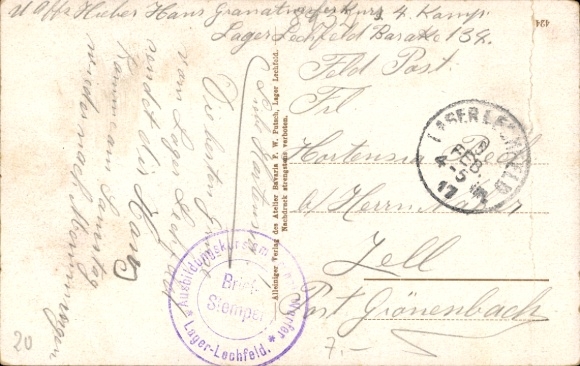 U Offz Hieber Hans Granatwerferkurs 4. Komp.
Lager Lechfeld Baracke 139.
Feld Post.
Frl.
Hortensia
b/ Herrn
Zell
Post Grönenbach
Liebe Hortensia
Die besten Grüße
von Lager Lechfeld
sendet dir Hans
Komme am Samstag
wieder nach Memmingen
Alleiniger Verlag des Atelier Bavaria F. W. Putsch, Lager Lechfeld.
Nachdruck strengstens verboten.
LAGER LECHFELD
FEB.
4-5
17
Ausbildungskurs Werfer
Brief-
Stempel
* Lager-Lechfeld. *
424
20
7.-